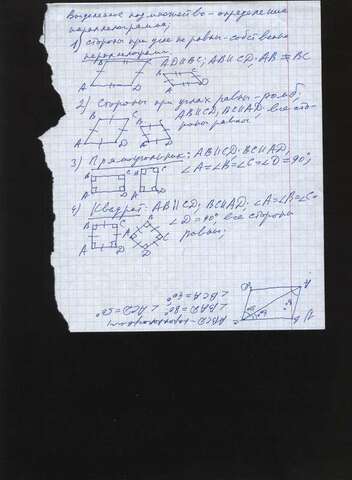 Выделенное подмножество - определение
параллелограмма;
1) стороны при угле не равны - собственно
параллелограмм.
AD∥BC; AB∥CD. AB ≠ BC
B C B C
A D A D
2) Стороны при углах равны - ромб.
AB∥CD, BC∥AD. все сто-
роны равны;
B C B C
A D A D
3) Прямоугольник: AB∥CD. BC∥AD,
∠A=∠B=∠C=∠D=90°;
B C B C
A D A D
4) Квадрат: AB∥CD; BC∥AD. ∠A=∠B=∠C=
∠D=90° все стороны
равны;
B C B C
A D A D
ABCD - параллелограмм
∠BAD=80° ∠ACD=50°
∠BCA=30°